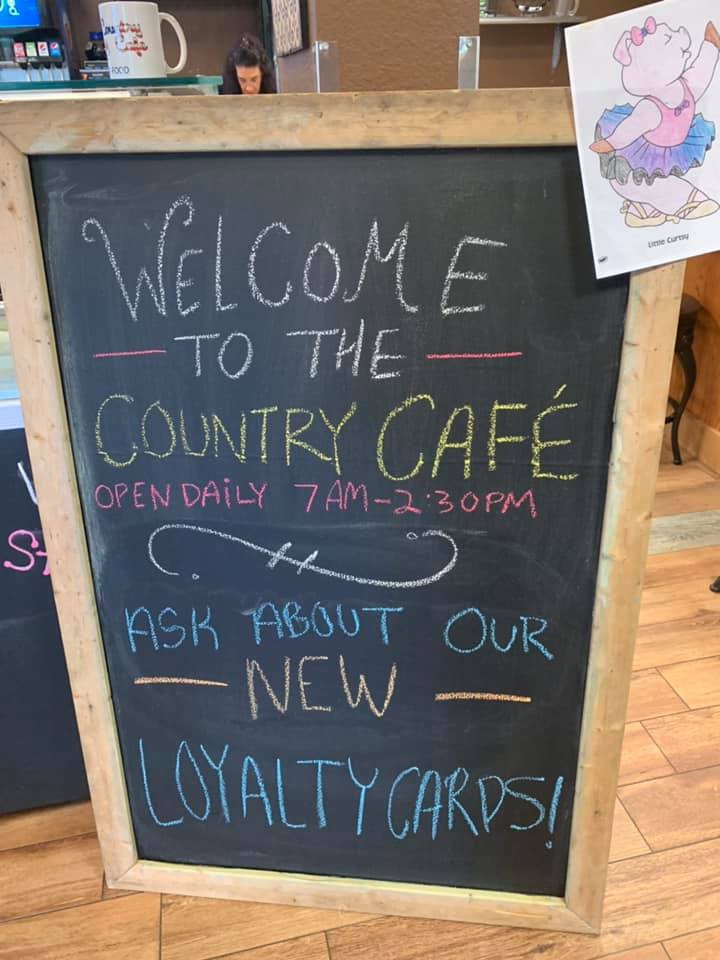 Country
Cafe
FOCO
WELCOME
TO THE
COUNTRY CAFÉ
OPEN DAILY 7 AM-2:30PM
ASK ABOUT OUR
NEW
LOYALTY CARDS!
Little Curtsy